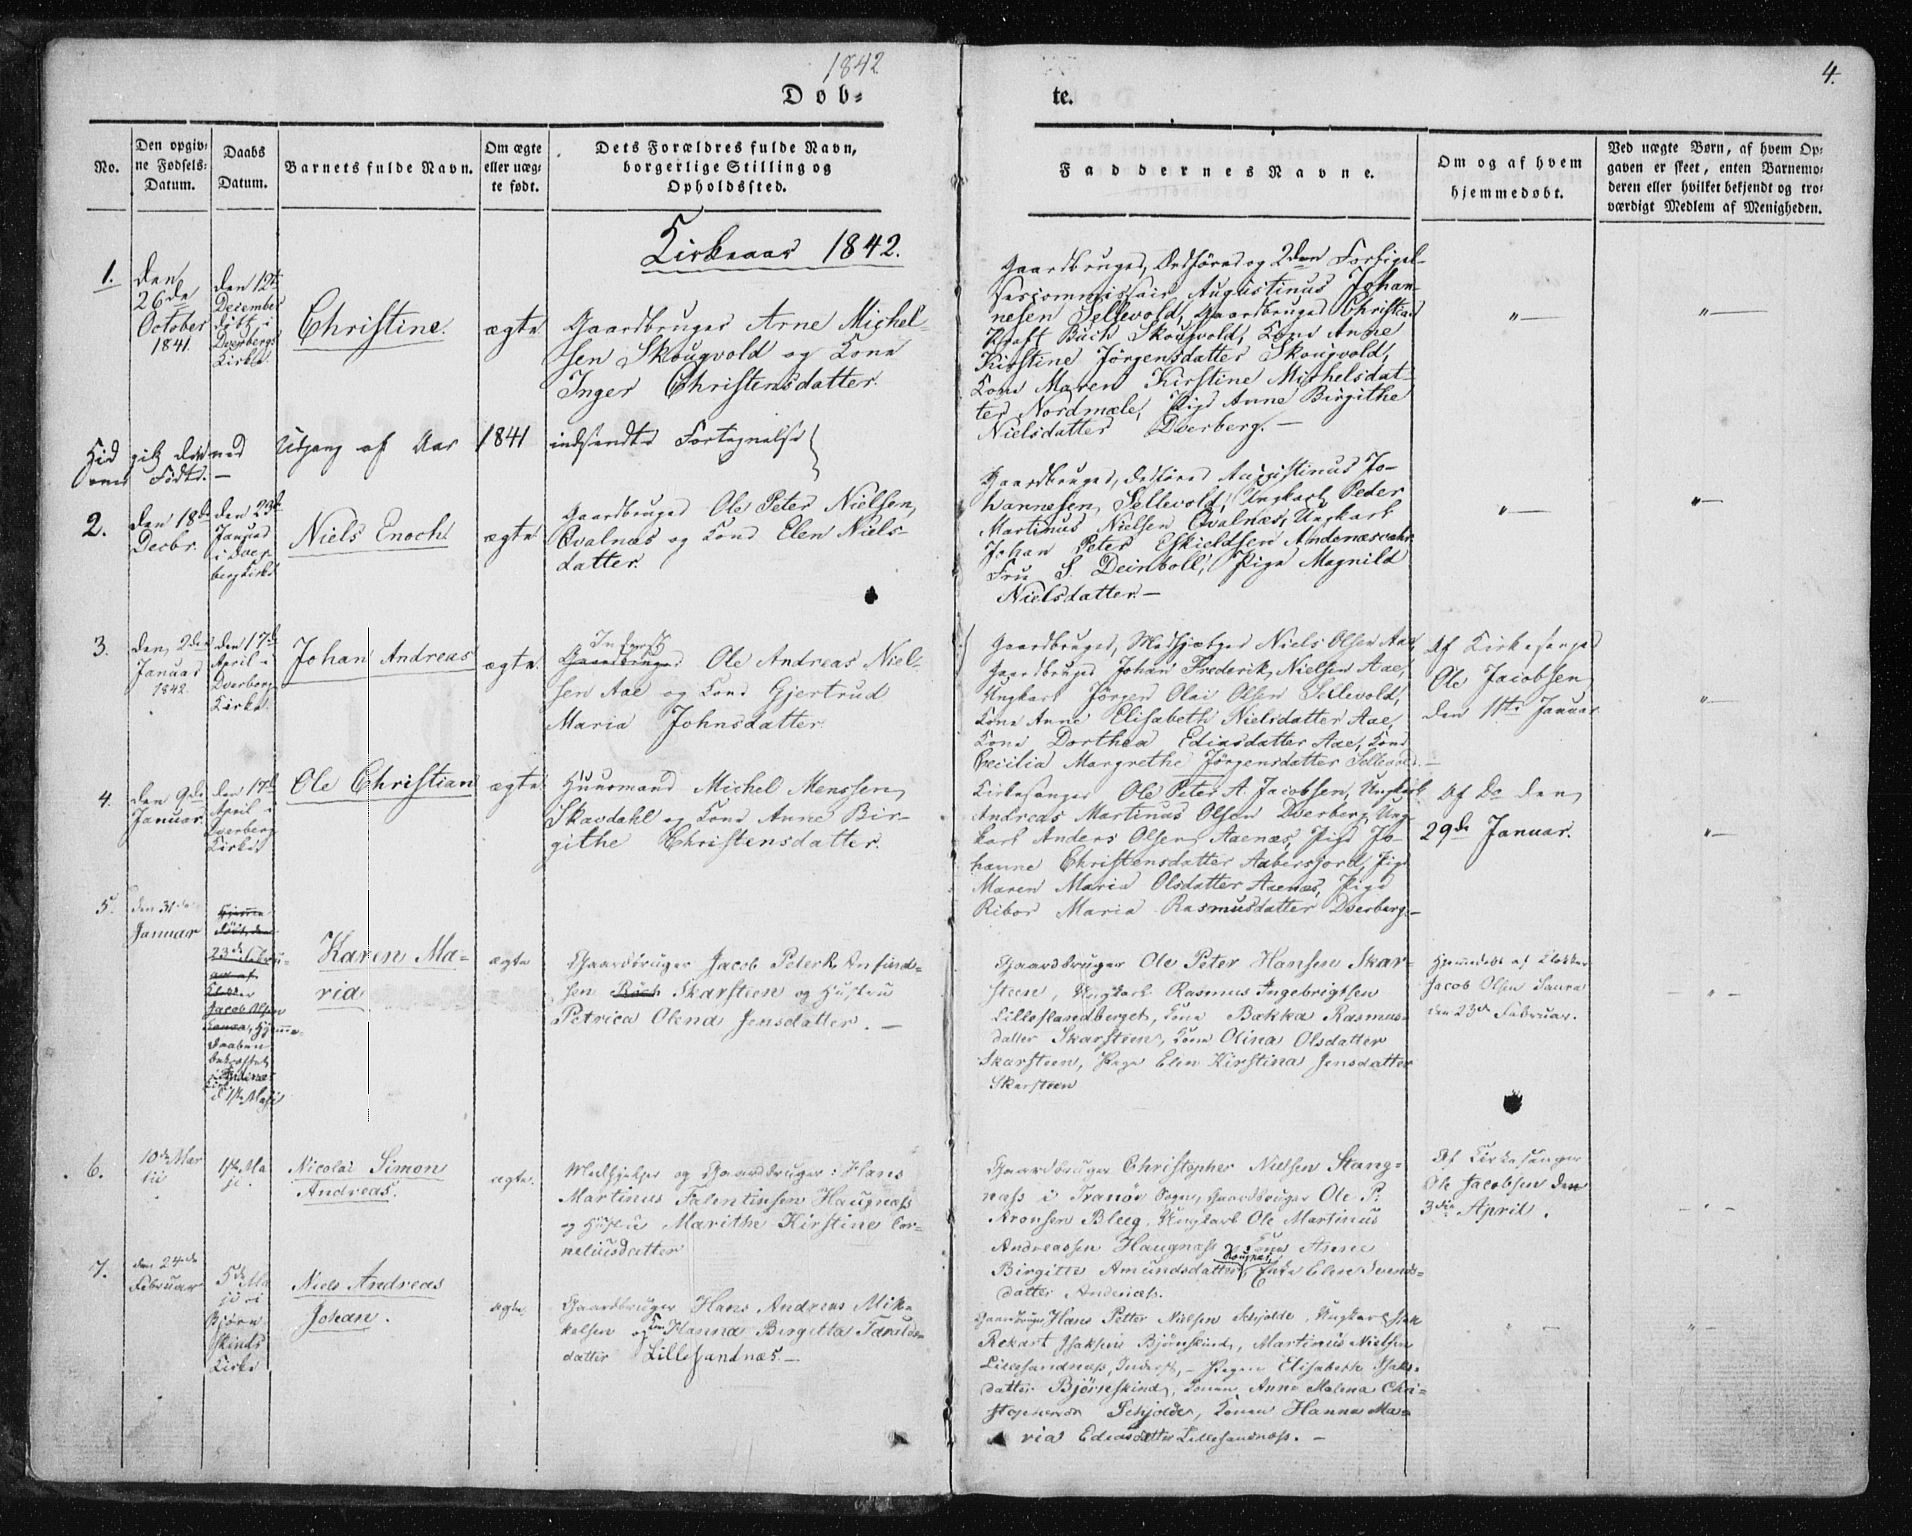 1842
4.
Døb-
te.
No.
Den opgiv-
ne Fødsels-
Datum.
Daabs
Datum.
Barnets fulde Navn.
Om ægte
eller uæg-
te født.
Dets Forældres fulde Navn,
borgerlige Stilling og
Opholdssted.
Faddernes Navne.
Om og af hvem
hjemmedøbt.
Ved uægte Børn, af hvem Op-
gaven er skeet, enten Barnemo-
deren eller hvilket bekjendt og tro-
værdigt Medlem af Menigheden.
Kirkeaar 1842.
1.
den
26de
October
1841.
den 12te
December
døbt i
Dverbergs
Kirke.
Christine.
ægte
Gaardbruger Arne Michel-
sen Skougvold og Kone
Inger Christensdatter.
Gaardbruger, Ordfører og 2den Forligel-
sescommissair Augustinus Johan-
nesen Sellevold, Gaardbruger Christian
Kraft Buch Skougvold, Kone Anne
Kirstine Jørgensdatter Skougvold,
Kone Maren Kirstine Michelsdat-
ter Nordmæle, Pige Anne Birgithe
Nielsdatter Dverberg. —
"—
"—
Hid gik den ved Udgang af Aar 1841 indsendte Fortegnelse
over Fødte. —
2.
den 18de
Decbr.
den 23de
Januar
i Dver-
berg Kirke
Niels Enoch
ægte
Gaardbruger Ole Peter Nielsen,
Qvalnæs og Kone Elen Niels-
datter.
Gaardbruger, Ordfører Augustinus Jo-
hannesen Sellevold, Ungkarl Peder
Martinus Nielsen Qvalnæs, Ungkarl
Johan Peter Eskieldsen Andenæs
Fru S. Deinboll, Pige Magnild
Nielsdatter. —
"—
"—
3.
den 2den
Januar
1842.
den 17de
April i
Dverberg
Kirke.
Johan Andreas
ægte.
Inderst
Gaardbruger Ole Andreas Niel-
sen Aae og Kone Gjertrud
Maria Johnsdatter.
Gaardbruger, Medhjælper Niels Olsen Aae,
Gaardbruger Johan Frederik Nielsen Aae,
Ungkarl Jørgen Olai Olsen Sellevold,
Kone Anne Elisabeth Nielsdatter Aae,
Kone Dorthea Ediasdatter Aae, Kone
Cecilia Margrethe Jørgensdatter Sellevold. —
Af Kirkesanger
Ole Jacobsen
den 11te Januar
"—
4.
den 9de
Januar.
den 17de
April i
Dverberg
Kirke
Ole Christian
ægte.
Huusmand Michel Menssen,
Skavdahl og Kone Anne Bir-
githe Christensdatter.
Kirkesanger Ole Peter A. Jacobsen, Ungkarl
Andreas Martinus Olsen Dverberg, Ung-
karl Anders Olsen Aaenæs, Pige Jo-
hanne Christensdatter Aabersjord, Pige
Maren Maria Olsdatter Aaenæs, Pige
Ribor Maria Rasmusdatter Dverberg. —
Af Do den
29de Januar.
"—
5.
den 31te
Januar
Hjemme
døbt den
23de Febru-
ar af
Klokker
Jacob Olsen
Saura, Hjemme-
daaben
bekræftet
i Andenæs
Kirke
d. 1ste Maji
Karen Ma-
ria
ægte
Gaardbruger Jacob Peter R. Anfind-
sen Buch Skarsteen og Hustru
Petrica Olena Jensdatter. —
Gaardbruger Ole Peter Hansen Skar-
steen, Ungkarl Rasmus Ingebrigtsen
Lilleslandberget, Kone Bækka Rasmus-
datter Skarsteen, Kone Olina Olsdatter
Skarsteen, Pige Elen Kirstina Jensdatter
Skarsteen
Hjemmedøbt af Klokker
Jacob Olsen Saura
den 23de Februar.
— " —
6.
10de Mar-
tii
1ste Ma-
ji.
Nicolai Simon
Andreas.
ægte.
Medhjelper og Gaardbruger Hans
Martinus Falentinsen Haugnæss
og Hustru Marithe Kirstine Cor-
neliusdatter
Gaardbruger Christopher Nielsen Stang-
næss i Tranøe Sogn, Gaardbruger Ole P.
Aronsen Bleeg, Ungkarl Ole Martinus
Andreassen Haugnæss, Kone Anne
Birgitte Amundsdatter Haugnæs, Enke Elen Svends-
datter Andenæss.
Af Kirkesanger
Ole Jacobsen den
3die April.
— " —
7.
den 24de
Februar
5te Ma-
ji i
Bjørn-
skinds
Kirke
Niels Andreas
Johan.
ægte.
Gaardbruger Hans Andreas Mik-
kelsen og Kone Hanna Birgitta Taralds-
datter Lillesandnæs. —
Gaardbruger Hans Petter Nielsen Schjolde, Ungkarl Isak
Rekart Isaksen Bjørnskind, Martinus Nielsen
Lillesandnæss, Inderst, — Pigen Elisabeth Isaks-
datter Bjørnskind, Konen Anne Malena Chri-
stophersdr Schjolde, Konen Hanna Ma-
ria Ediasdatter Lillesandnæss. —
" —
" —